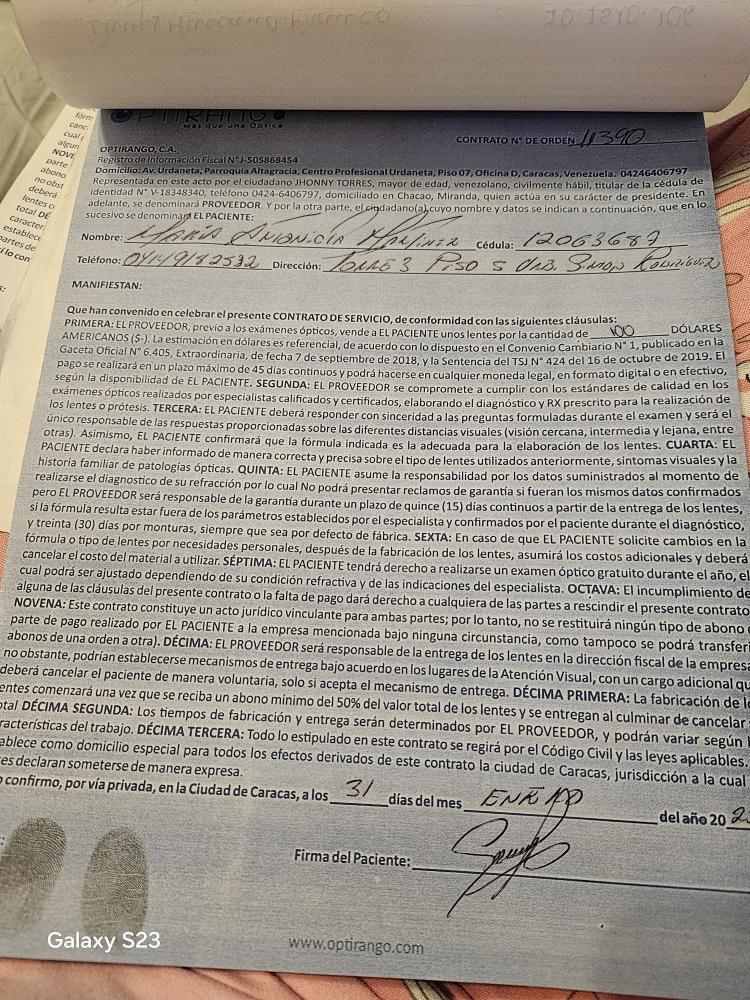 OPTIRANGO
Más que una Óptica
CONTRATO N° DE ORDEN 11390
OPTIRANGO, C.A.
Registro de Información Fiscal N°J-505868454
Domicilio: Av. Urdaneta, Parroquia Altagracia, Centro Profesional Urdaneta, Piso 07, Oficina D, Caracas, Venezuela. 04246406797
Representada en este acto por el ciudadano JHONNY TORRES, mayor de edad, venezolano, civilmente hábil, titular de la cédula de
identidad N° V-18348340, teléfono 0424-6406797, domiciliado en Chacao, Miranda, quien actúa en su carácter de presidente. En
adelante, se denominará PROVEEDOR. Y por la otra parte, el ciudadano(a), cuyo nombre y datos se indican a continuación, que en lo
sucesivo se denominará EL PACIENTE:
Nombre: María Martinez Cédula: 12063687
Teléfono: 04149182532 Dirección: Torre 3 Piso 5 Urb. Simon Rodriguez
MANIFIESTAN:
Que han convenido en celebrar el presente CONTRATO DE SERVICIO, de conformidad con las siguientes cláusulas:
PRIMERA: EL PROVEEDOR, previo a los exámenes ópticos, vende a EL PACIENTE unos lentes por la cantidad de 100 DÓLARES
AMERICANOS ($-). La estimación en dólares es referencial, de acuerdo con lo dispuesto en el Convenio Cambiario N° 1, publicado en la
Gaceta Oficial N° 6.405, Extraordinaria, de fecha 7 de septiembre de 2018, y la Sentencia del TSJ N° 424 del 16 de octubre de 2019. El
pago se realizará en un plazo máximo de 45 días continuos y podrá hacerse en cualquier moneda legal, en formato digital o en efectivo,
según la disponibilidad de EL PACIENTE. SEGUNDA: EL PROVEEDOR se compromete a cumplir con los estándares de calidad en los
exámenes ópticos realizados por especialistas calificados y certificados, elaborando el diagnóstico y RX prescrito para la realización de
los lentes o prótesis. TERCERA: EL PACIENTE deberá responder con sinceridad a las preguntas formuladas durante el examen y será el
único responsable de las respuestas proporcionadas sobre las diferentes distancias visuales (visión cercana, intermedia y lejana, entre
otras). Asimismo, EL PACIENTE confirmará que la fórmula indicada es la adecuada para la elaboración de los lentes. CUARTA: EL
PACIENTE declara haber informado de manera correcta y precisa sobre el tipo de lentes utilizados anteriormente, síntomas visuales y la
historia familiar de patologías ópticas. QUINTA: EL PACIENTE asume la responsabilidad por los datos suministrados al momento de
realizarse el diagnostico de su refracción por lo cual No podrá presentar reclamos de garantía si fueran los mismos datos confirmados
pero EL PROVEEDOR será responsable de la garantía durante un plazo de quince (15) días continuos a partir de la entrega de los lentes,
si la fórmula resulta estar fuera de los parámetros establecidos por el especialista y confirmados por el paciente durante el diagnóstico,
y treinta (30) días por monturas, siempre que sea por defecto de fábrica. SEXTA: En caso de que EL PACIENTE solicite cambios en la
fórmula o tipo de lentes por necesidades personales, después de la fabricación de los lentes, asumirá los costos adicionales y deberá
cancelar el costo del material a utilizar. SÉPTIMA: EL PACIENTE tendrá derecho a realizarse un examen óptico gratuito durante el año, el
cual podrá ser ajustado dependiendo de su condición refractiva y de las indicaciones del especialista. OCTAVA: El incumplimiento de
alguna de las cláusulas del presente contrato o la falta de pago dará derecho a cualquiera de las partes a rescindir el presente contrato
NOVENA: Este contrato constituye un acto jurídico vinculante para ambas partes; por lo tanto, no se restituirá ningún tipo de abono
parte de pago realizado por EL PACIENTE a la empresa mencionada bajo ninguna circunstancia, como tampoco se podrá transferi
abonos de una orden a otra). DÉCIMA: EL PROVEEDOR será responsable de la entrega de los lentes en la dirección fiscal de la empres
no obstante, podrían establecerse mecanismos de entrega bajo acuerdo en los lugares de la Atención Visual, con un cargo adicional qu
deberá cancelar el paciente de manera voluntaria, solo si acepta el mecanismo de entrega. DÉCIMA PRIMERA: La fabricación de l
entes comenzará una vez que se reciba un abono mínimo del 50% del valor total de los lentes y se entregan al culminar de cancelar
otal DÉCIMA SEGUNDA: Los tiempos de fabricación y entrega serán determinados por EL PROVEEDOR, y podrán variar según l
racterísticas del trabajo. DÉCIMA TERCERA: Todo lo estipulado en este contrato se regirá por el Código Civil y las leyes aplicables.
ablece como domicilio especial para todos los efectos derivados de este contrato la ciudad de Caracas, jurisdicción a la cual
es declaran someterse de manera expresa.
confirmo, por vía privada, en la Ciudad de Caracas, a los 31 días del mes ENERO del año 202
Firma del Paciente:
www.optirango.com
Galaxy S23